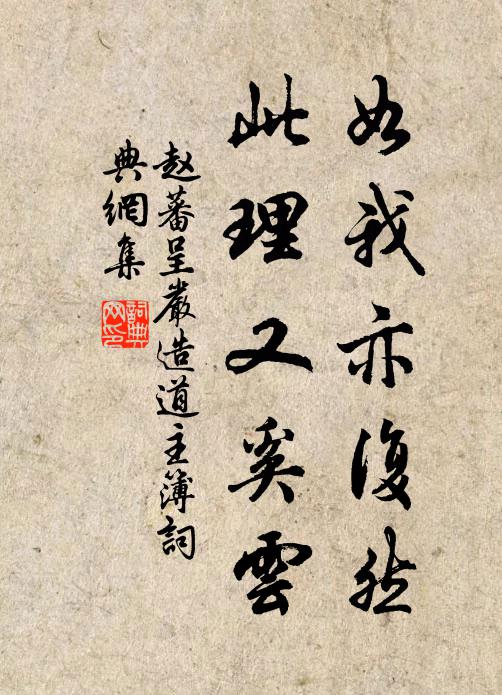 如我亦復然
此理又奚雲
趙蕃呈嚴造道主簿詞
典網集
詞典
网印